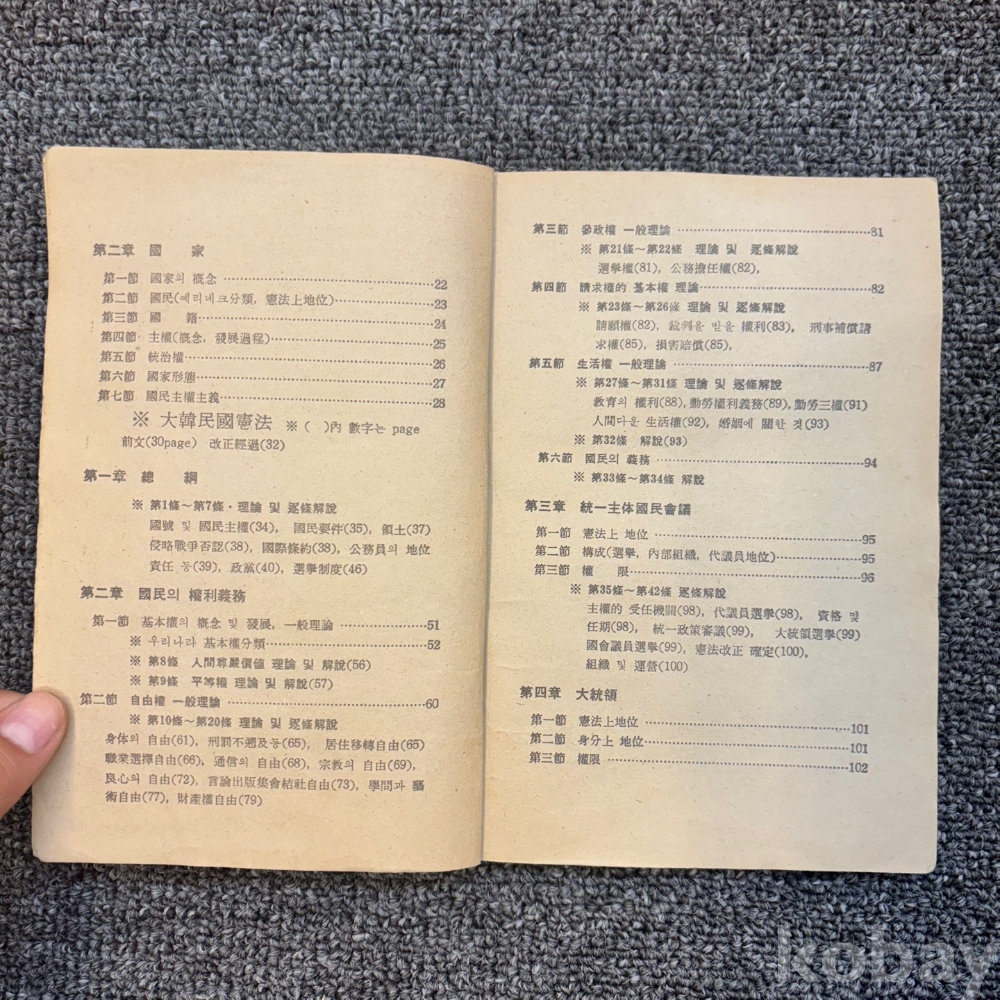 第二章 國 家
第一節 國家의 槪念 ……………… 22
第二節 國民(예리네크分類, 憲法上地位) …… 23
第三節 國 籍 ……………… 24
第四節 主權(槪念, 發展過程) ……………… 25
第五節 統治權 ……………… 26
第六節 國家形態 ……………… 27
第七節 國民主權主義 ……………… 28
※ 大韓民國憲法 ※ ( )內 數字는 page
前文(30page) 改正經過(32)
第一章 總 綱
※ 第1條~第7條·理論 및 逐條解說
國號 및 國民主權(34), 國民要件(35), 領土(37)
侵略戰爭否認(38), 國際條約(38), 公務員의 地位
責任 등(39), 政黨(40), 選擧制度(46)
第二章 國民의 權利義務
第一節 基本權의 槪念 및 發展, 一般理論 ……… 51
※ 우리나라 基本權分類 ……………… 52
※ 第8條 人間尊嚴價値 理論 및 解說(56)
※ 第9條 平等權 理論 및 解說(57)
第二節 自由權 一般理論 ……………… 60
※ 第10條~第20條 理論 및 逐條解說
身体의 自由(61), 刑罰不遡及등(65), 居住移轉自由(65)
職業選擇自由(66), 通信의 自由(68), 宗敎의 自由(69),
良心의 自由(72), 言論出版集會結社自由(73), 學問과 藝
術自由(77), 財產權自由(79)
第三節 參政權 一般理論 ……………… 81
※ 第21條~第22條 理論 및 逐條解說
選擧權(81), 公務擔任權(82),
第四節 請求權的 基本權 理論 ……………… 82
※ 第23條~第26條 理論 및 逐條解說
請願權(82), 裁判을 받을 權利(83), 刑事補償請
求權(85), 損害賠償(85),
第五節 生活權 一般理論 ……………… 87
※ 第27條~第31條 理論 및 逐條解說
敎育의 權利(88), 勤勞權利義務(89), 勤勞三權(91)
人間다운 生活權(92), 婚姻에 關한 것(93)
※ 第32條 解說(93)
第六節 國民의 義務 ……………… 94
※ 第33條~第34條 解說
第三章 統一主体國民會議
第一節 憲法上 地位 ……………… 95
第二節 構成(選擧, 內部組織, 代議員地位) ……… 95
第三節 權 限 ……………… 96
※ 第35條~第42條 逐條解說
主權的 受任機關(98), 代議員選擧(98), 資格 및
任期(98), 統一政策審議(99), 大統領選擧(99)
國會議員選擧(99), 憲法改正 確定(100),
組織 및 運營(100)
第四章 大統領
第一節 憲法上地位 ……………… 101
第二節 身分上 地位 ……………… 101
第三節 權限 ……………… 102
kobay